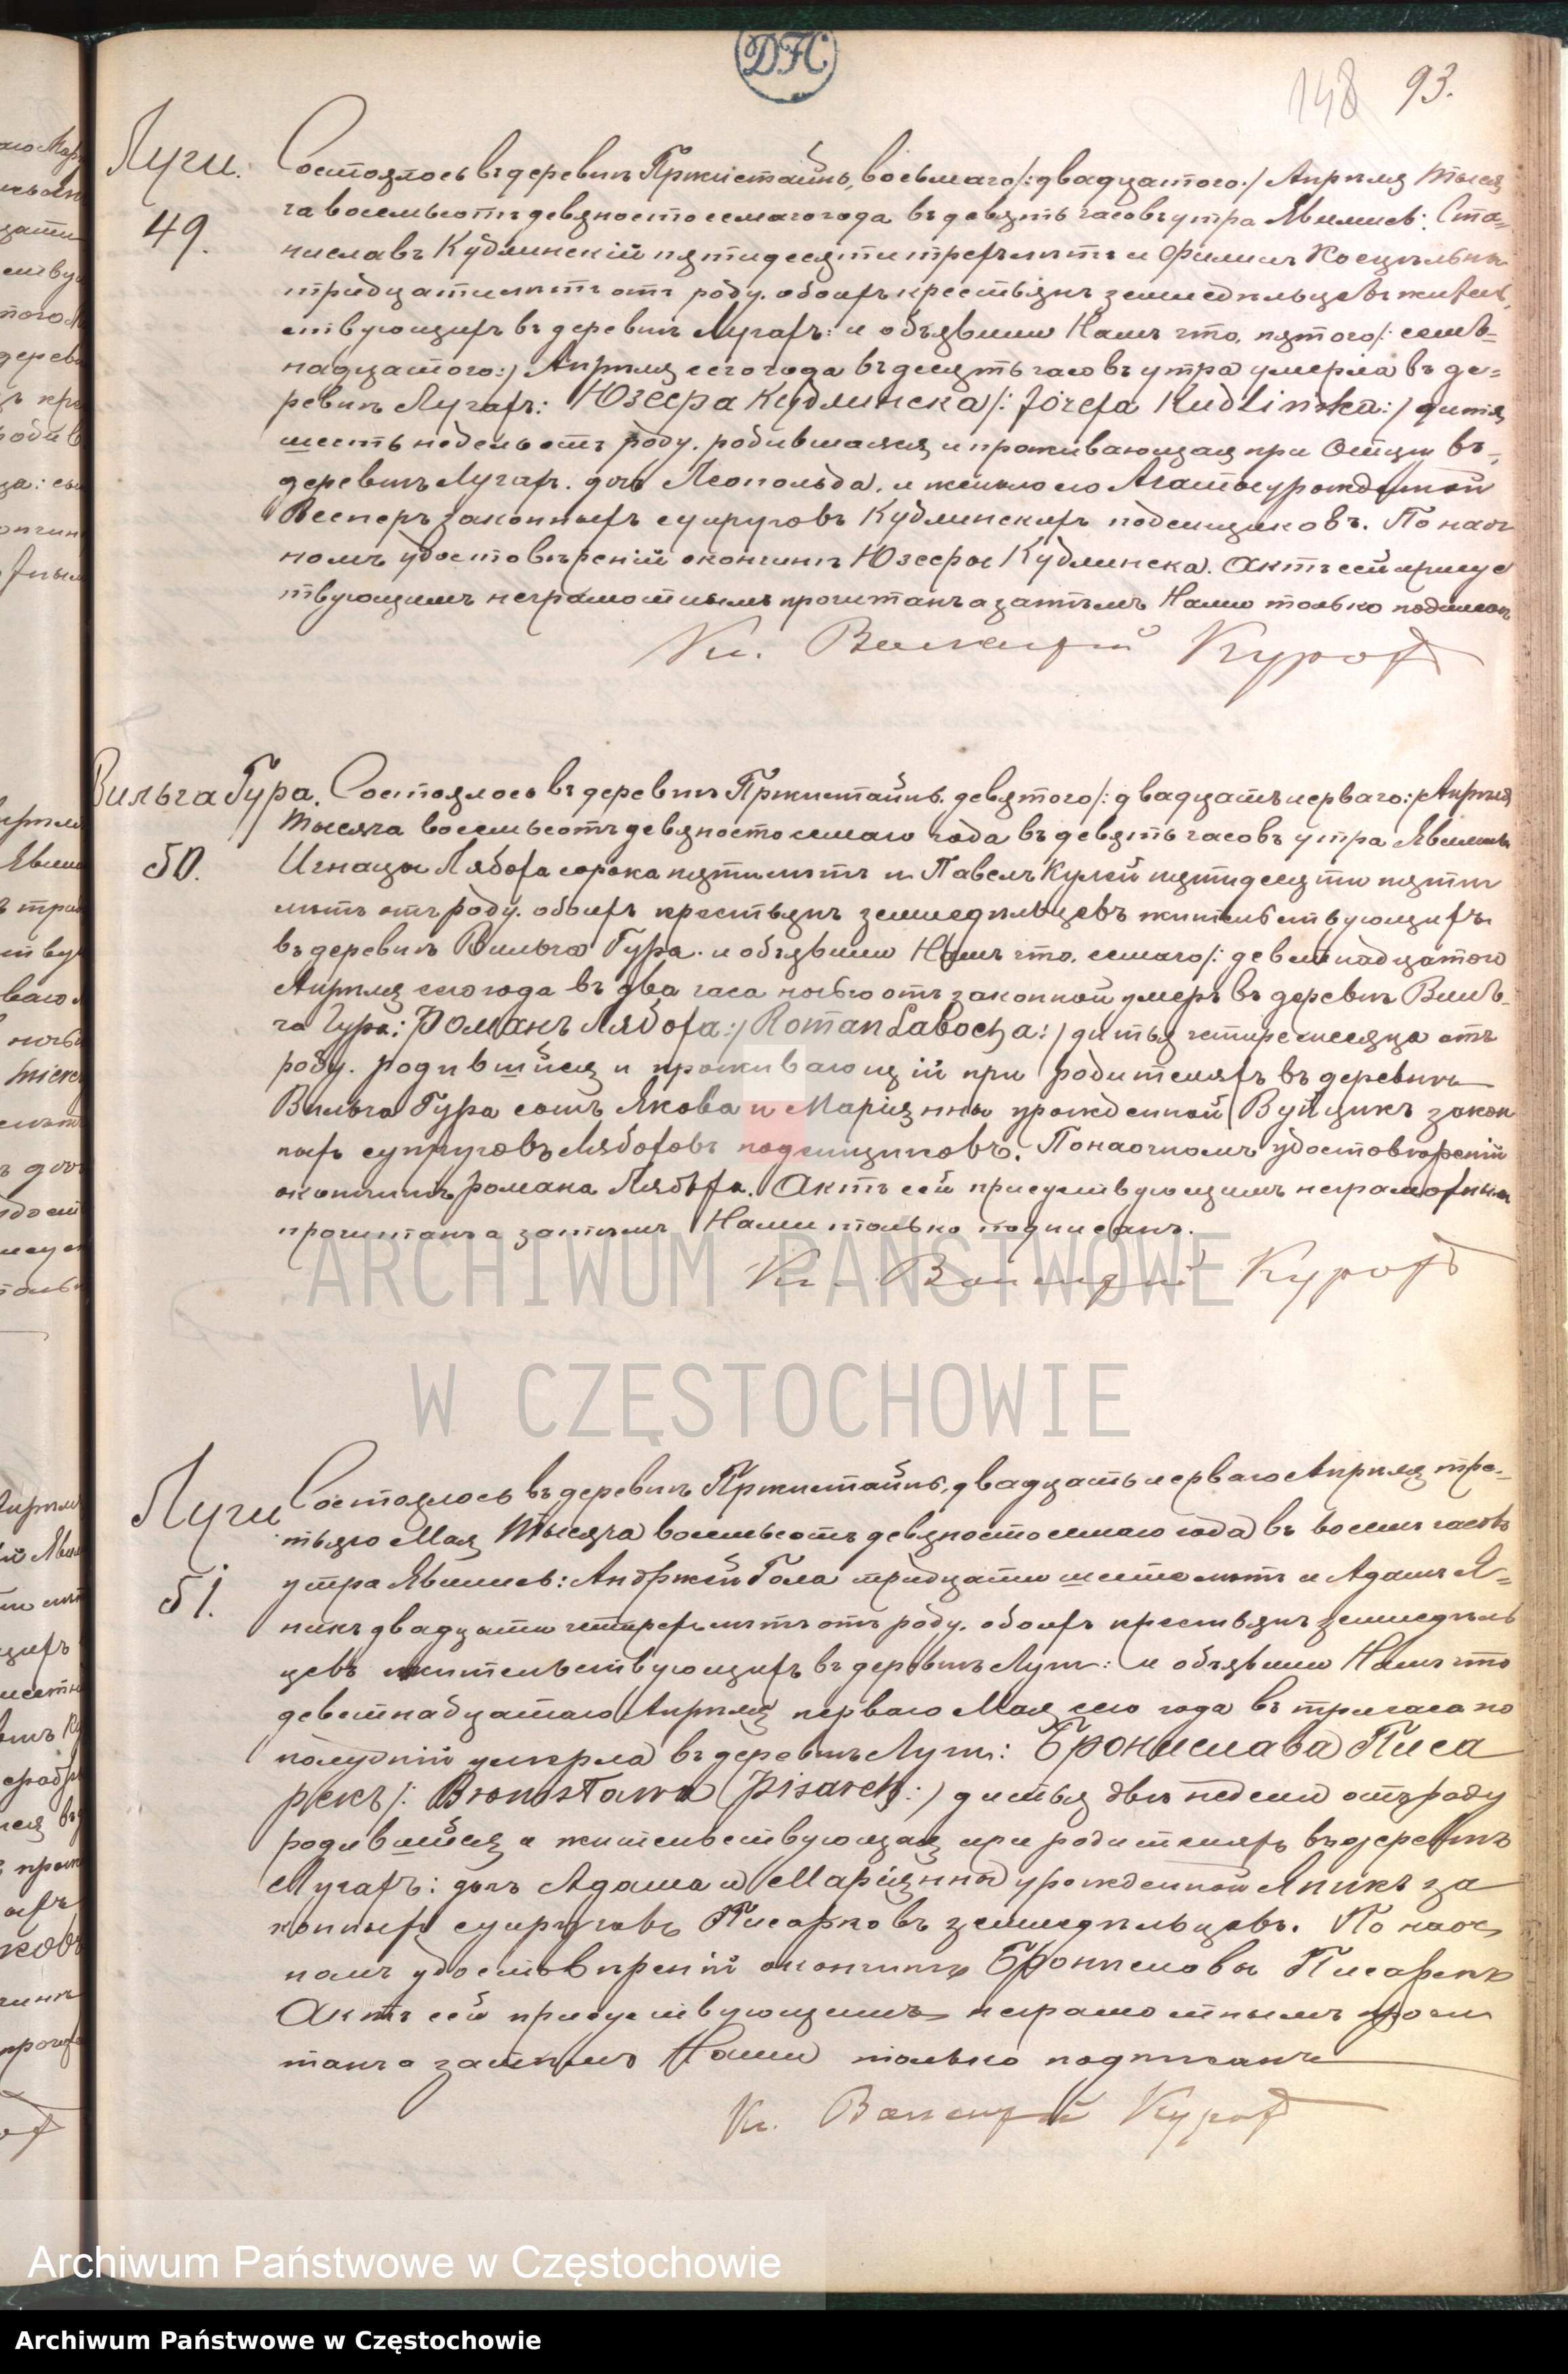 148 93.
Луги.
49.
Состоялось въ деревнѣ Пржистайнь, восьмаго /:двадцатого:/ Апрѣля тыся
ча восемьсотъ девяносто семаго года въ девять часовъ утра Явились: Ста=
ниславъ Кудлинскій пятидесяти трехъ лѣтъ и Филипъ
тридцати лѣтъ отъ роду. обоихъ крестьянъ земледѣльцевъ житель
ствующихъ въ деревнѣ Лугахъ: и объявили Намъ что, пятого /: семь=
надцатого:/ Апрѣля сего года въ десять часовъ утра умерла въ де=
ревнѣ Лугахъ: Юзефа Кудлинска /: Józefa Kudlinska:/ дитя
шесть недель отъ роду. родившаяся и проживающая при Отцѣ въ
деревнѣ Лугахъ. дочь Леопольда. и жены его Агаты урожденной
Весперъ законныхъ супруговъ Кудлинскихъ поденщиковъ. По наоч
номъ удостовѣреній окончинѣ Юзефы Кудлинска. Актъ сей присус
твующимъ неграмотнымъ прочитанъ а затѣмъ Нами только подписанъ
Кс. Валенцій Курох
Вильга Гура.
50.
Состоялось въ деревнѣ Пржистайнь. девятого /: двадцать перваго:/ Апрѣля
тысяча восемьсотъ девяносто семаго года въ девять часовъ утра Явились
Игнацы Лябоха сорока пяти лѣтъ и Павелъ Кулей пятидесяти пяти
лѣтъ отъ роду. обоихъ крестьянъ земледѣльцевъ жительствующихъ
въ деревнѣ Вильга Гура. и объявили Намъ что. семаго /: девятнадцатого
Апрѣля сего года въ два часа ночью отъ законной умеръ въ деревнѣ Виль-
га Гура: Романъ Лябоха:/ Roman Labocha:/ дитья четыре месяца отъ
роду. родившійся и проживающій при родителяхъ въ деревнѣ
Вильга Гура сынъ Якова и Маріянны урожденной Вуйцикъ закон
ныхъ супруговъ Лябоховъ поденщиковъ. По наочномъ удостовѣреній
окончинѣ Романа Лябоха. Актъ сей присуствующимъ неграмотнымъ
прочитанъ а затѣмъ Нами только подписанъ.
Кс. Валенцій Курох
Луги
51.
Состоялось въ деревнѣ Пржистайнь, двадцать перваго Апрѣля тре-
тьяго Мая Тысяча восемьсотъ девяносто семаго года въ восемь часовъ
утра Явились: Андржей Гола тридцати шести лѣтъ и Адамъ Я=
никъ двадцати четырехъ лѣтъ отъ роду. обоихъ крестьянъ земледѣль
цевъ жительствующихъ въ деревнѣ Луги: и объявили Намъ что
девятнадцатаго Апрѣля перваго Мая сего года въ три часа по
полудній умерла въ деревнѣ Луги: Брониславa Писа
рекъ /: Bronisława Pisarek:/ дитья двѣ недели отъ роду
родившійся и жительствующая при родителяхъ въ деревнѣ
Лугахъ: дочь Адама и Маріянны урожденной Яникъ за
конныхъ супруговъ Писарковъ земледѣльцевъ. По наоч
номъ удостовѣреній окончинѣ Брониславы Писарекъ
Актъ сей присуствующимъ неграмотнымъ прочи
танъ а затѣмъ Нами только подписанъ
Кс. Валенцій Курох
ARCHIWUM PAŃSTWOWE
W CZĘSTOCHOWIE
Archiwum Państwowe w Częstochowie
Archiwum Państwowe w Częstochowie